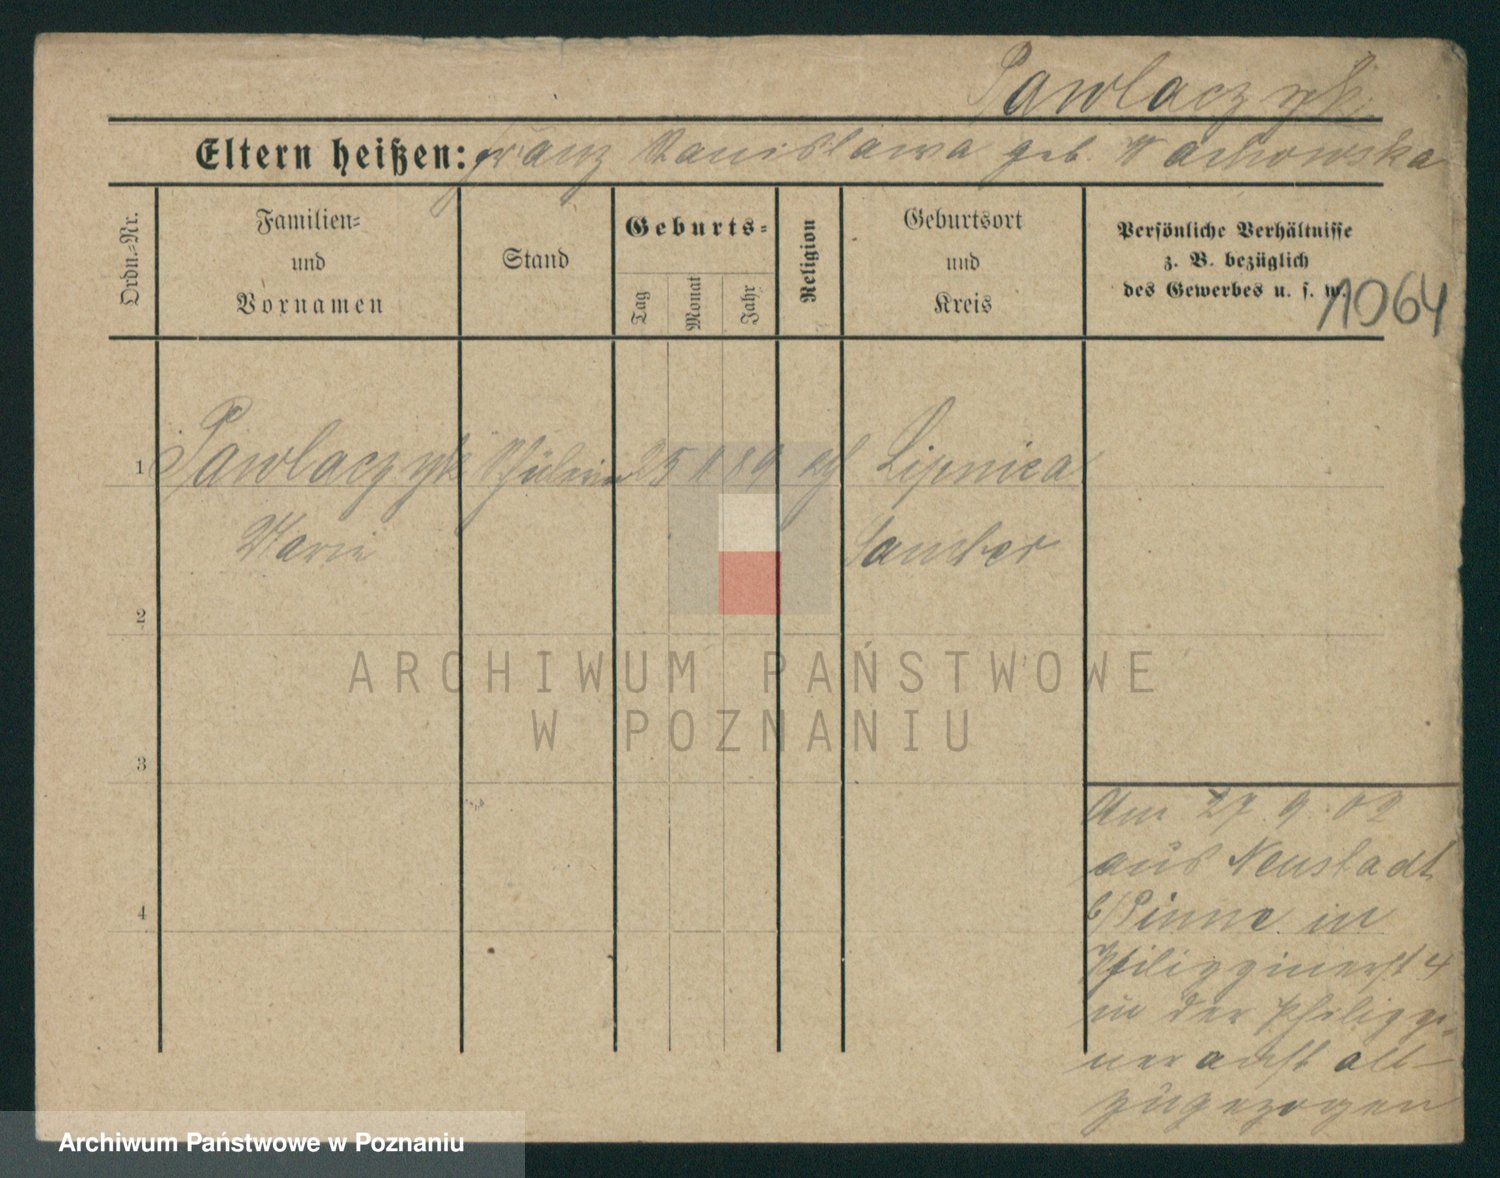 Pawlaczyk
Eltern heißen: Franz Stanislawa geb. Wachowska
Ordn.-Nr.
Familien-
und
Vornamen
Stand
Geburts-
Tag
Monat
Jahr
Religion
Geburtsort
und
Kreis
Persönliche Verhältnisse
z. B. bezüglich
des Gewerbes u. s. w.
1064
1 Pawlaczyk Schülerin 25 89 kth Lipnica
Marie Samter
2
3
4
Am 27. 9. 02
aus Neustadt
b/Pinne in
4
in der Philippi-
neranstalt
zugezogen
ARCHIWUM PAŃSTWOWE
W POZNANIU
Archiwum Państwowe w Poznaniu